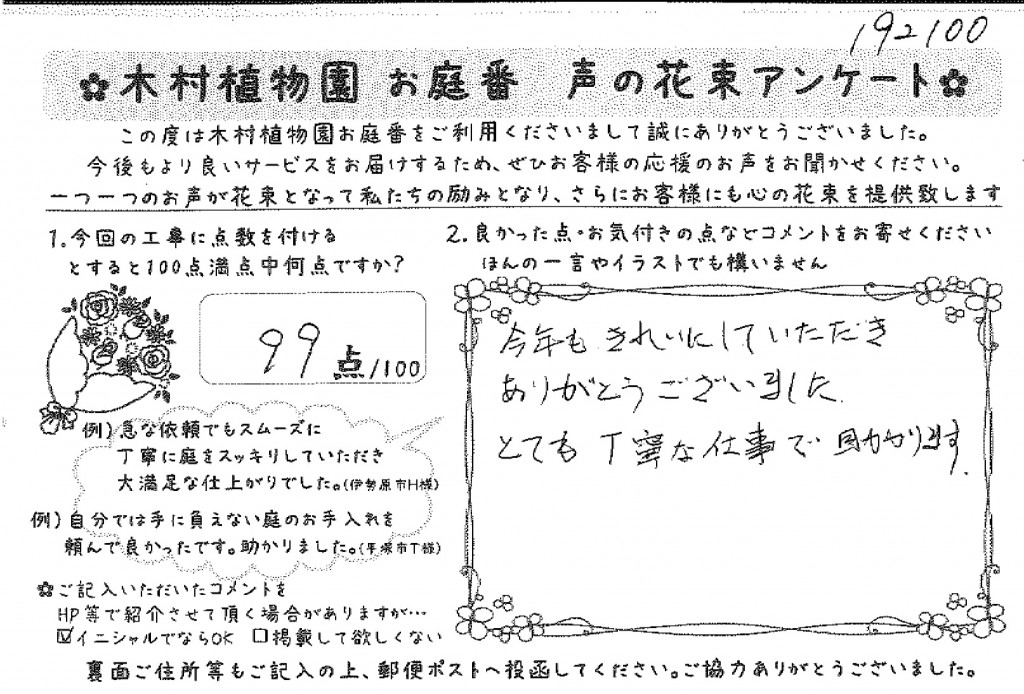 192100
✿木村植物園 お庭番 声の花束アンケート✿
この度は木村植物園お庭番をご利用くださいまして誠にありがとうございました。
今後もより良いサービスをお届けするため、ぜひお客様の応援のお声をお聞かせください。
一つ一つのお声が花束となって私たちの励みとなり、さらにお客様にも心の花束を提供致します
1.今回の工事に点数を付ける
とすると100点満点中何点ですか?
99点/100
例)急な依頼でもスムーズに
丁寧に庭をスッキリしていただき
大満足な仕上がりでした。(伊勢原市H様)
例)自分では手に負えない庭のお手入れを
頼んで良かったです。助かりました。(平塚市T様)
✿ご記入いただいたコメントを
HP等で紹介させて頂く場合がありますが…
☑イニシャルでならOK □掲載して欲しくない
2.良かった点・お気付きの点などコメントをお寄せください
ほんの一言やイラストでも構いません
今年もきれいにしていただき
ありがとうございました
とても丁寧な仕事で助かります.
裏面ご住所等もご記入の上、郵便ポストへ投函してください。ご協力ありがとうございました。